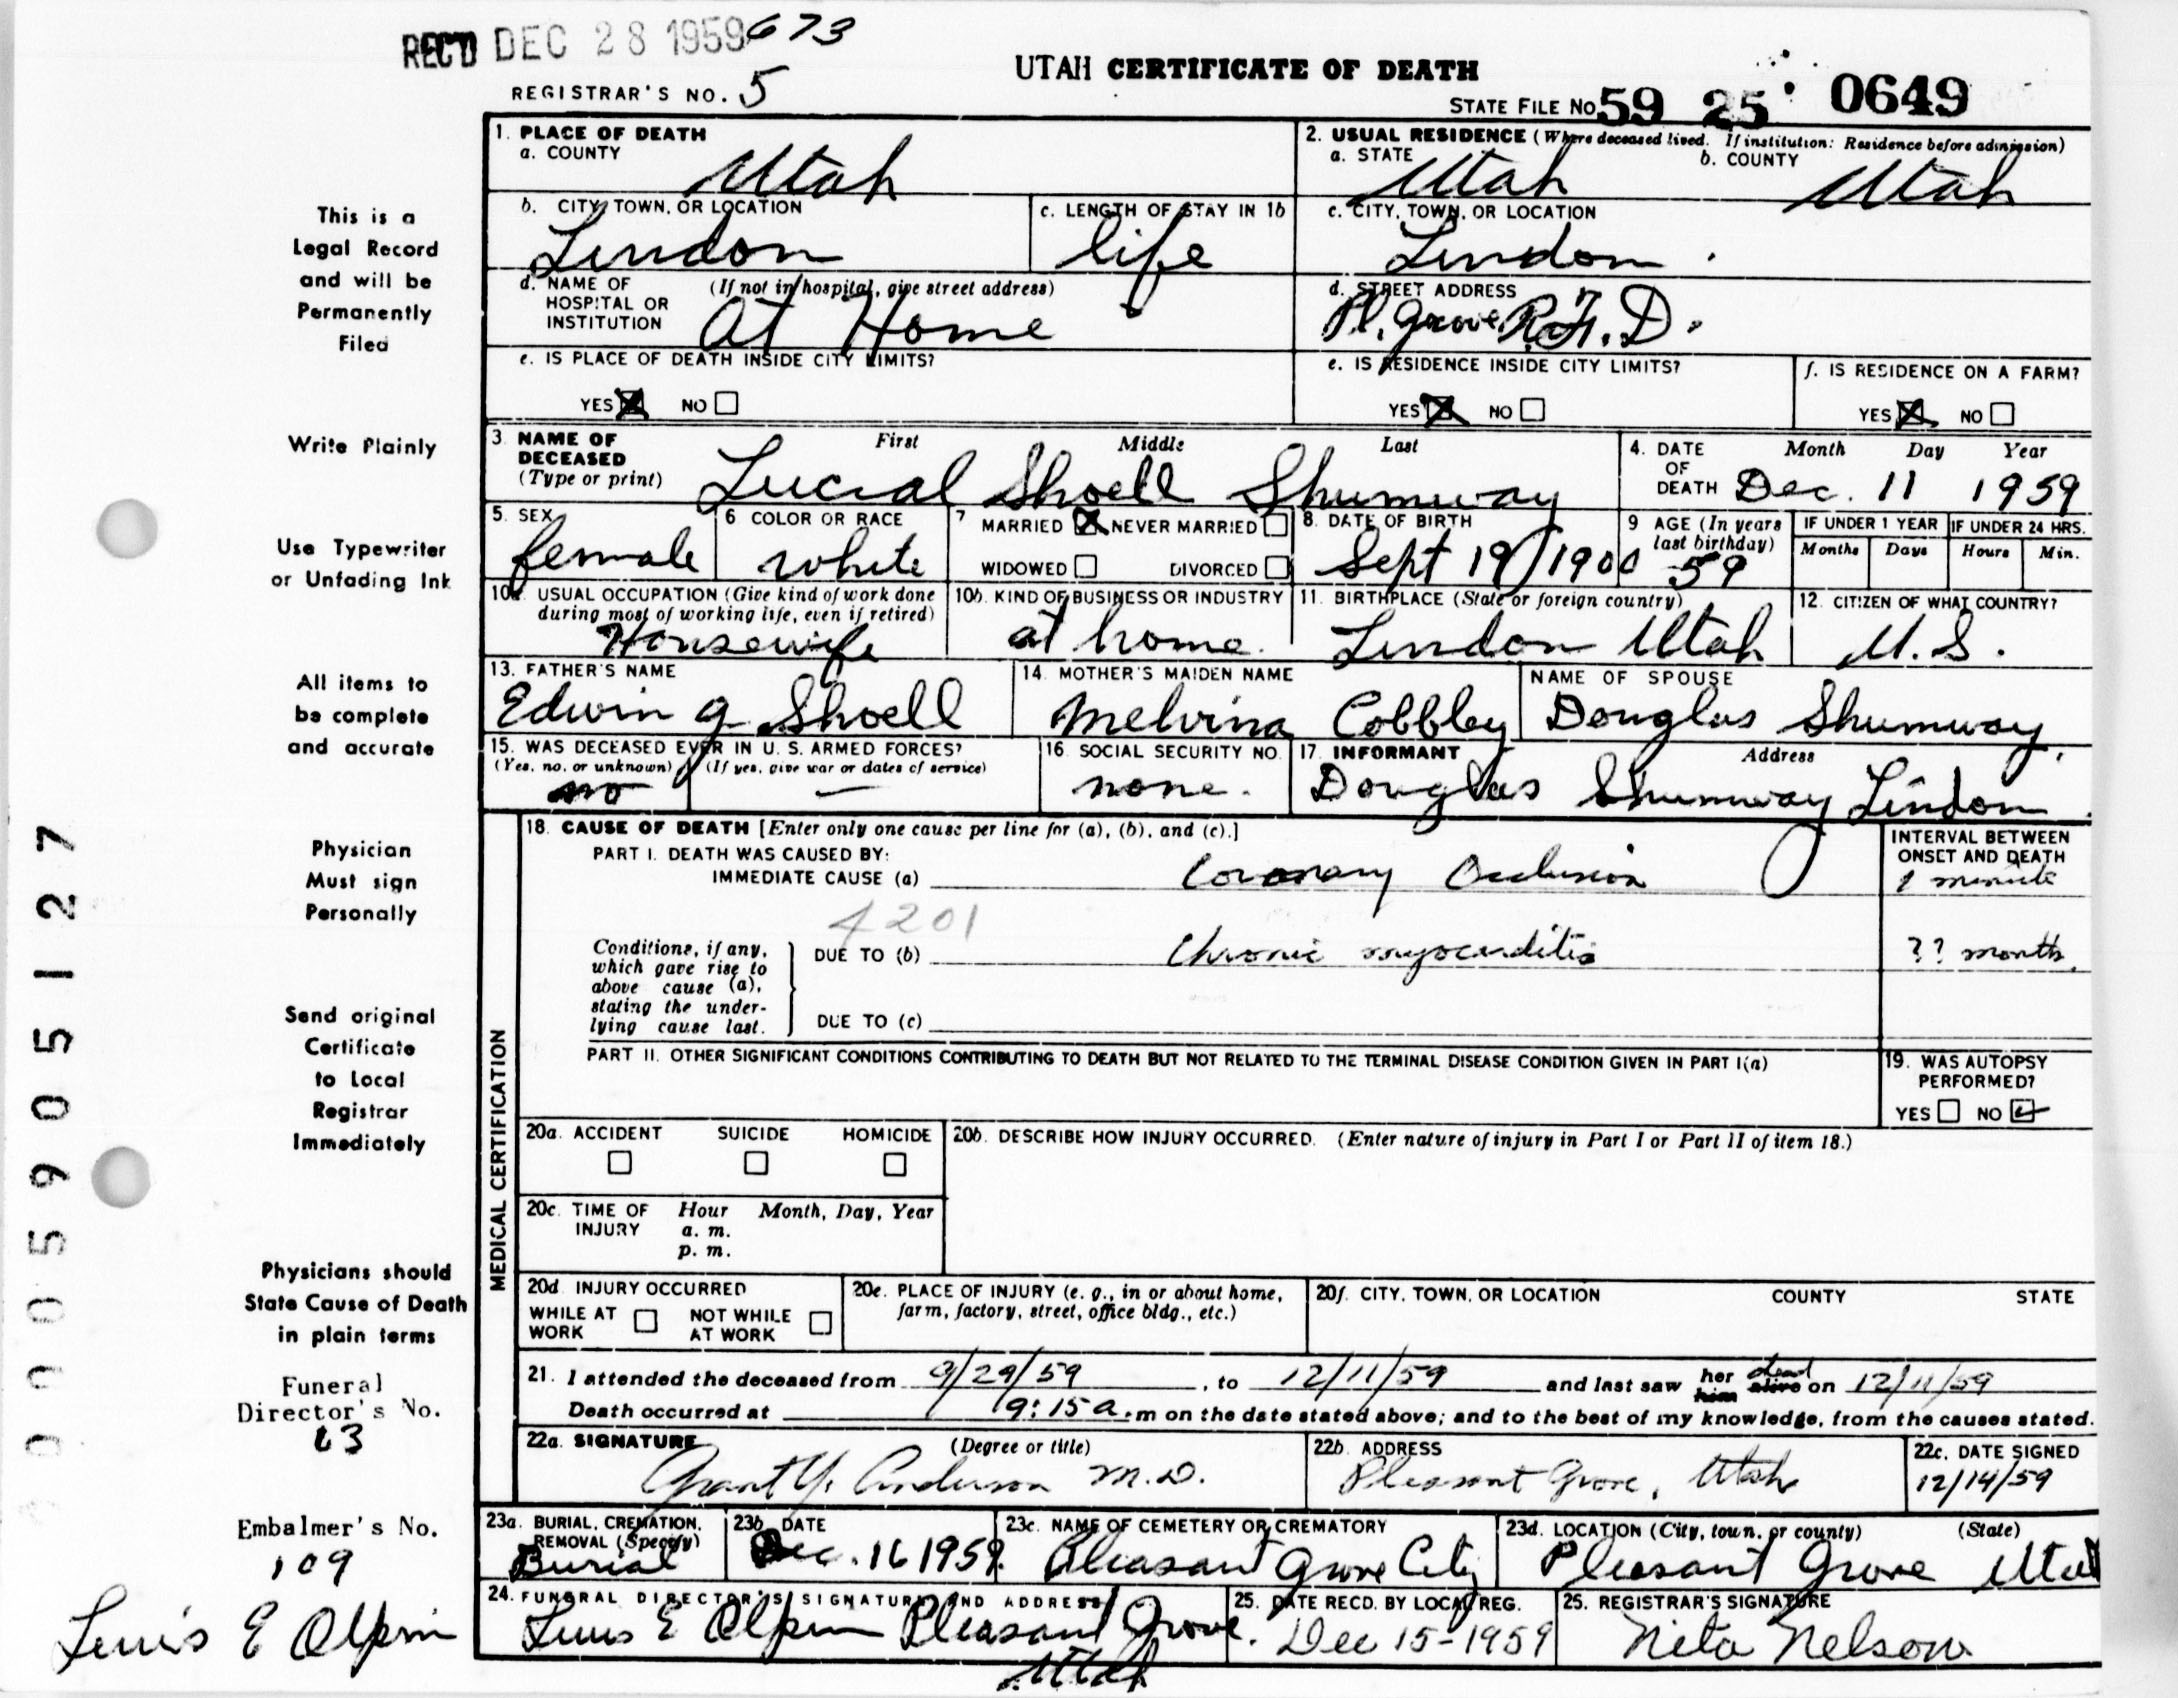 REC'D DEC 28 1959 673
UTAH CERTIFICATE OF DEATH
REGISTRAR'S NO. 5
STATE FILE NO 59 25 0649
1. PLACE OF DEATH
a. COUNTY
Utah
2. USUAL RESIDENCE (Where deceased lived. If institution: Residence before admission)
a. STATE
Utah
b. COUNTY
Utah
b. CITY, TOWN, OR LOCATION
Lindon
c. LENGTH OF STAY IN 1b
life
c. CITY, TOWN, OR LOCATION
Lindon.
d. NAME OF HOSPITAL OR INSTITUTION
(If not in hospital, give street address)
At Home
d. STREET ADDRESS
Pl. Grove R.F.D.
e. IS PLACE OF DEATH INSIDE CITY LIMITS?
YES NO
e. IS RESIDENCE INSIDE CITY LIMITS?
YES NO
f. IS RESIDENCE ON A FARM?
YES NO
3 NAME OF DECEASED
(Type or print)
First Middle Last
Lucial Shoell Shumway
4. DATE OF DEATH
Month Day Year
Dec. 11 1959
5. SEX
female
6 COLOR OR RACE
white
7 MARRIED NEVER MARRIED
WIDOWED DIVORCED
8. DATE OF BIRTH
Sept 19, 1900
9 AGE (In years last birthday)
59
IF UNDER 1 YEAR IF UNDER 24 HRS.
Months Days Hours Min.
10a. USUAL OCCUPATION (Give kind of work done during most of working life, even if retired)
Housewife
10b. KIND OF BUSINESS OR INDUSTRY
at home.
11. BIRTHPLACE (State or foreign country)
Lindon Utah
12. CITIZEN OF WHAT COUNTRY?
U.S.
13. FATHER'S NAME
Edwin G Shoell
14. MOTHER'S MAIDEN NAME
Melvina Cobbley
NAME OF SPOUSE
Douglas Shumway
15. WAS DECEASED EVER IN U. S. ARMED FORCES?
(Yes, no, or unknown) (If yes, give war or dates of service)
no —
16. SOCIAL SECURITY NO.
none.
17. INFORMANT Address
Douglas Shumway Lindon
18. CAUSE OF DEATH [Enter only one cause per line for (a), (b), and (c).]
PART I. DEATH WAS CAUSED BY:
IMMEDIATE CAUSE (a) Coronary Occlusion
INTERVAL BETWEEN ONSET AND DEATH
1 minute
4201
Conditions, if any, which gave rise to above cause (a), stating the underlying cause last.
DUE TO (b) Chronic myocarditis
?? month.
DUE TO (c)
PART II. OTHER SIGNIFICANT CONDITIONS CONTRIBUTING TO DEATH BUT NOT RELATED TO THE TERMINAL DISEASE CONDITION GIVEN IN PART I(a)
19. WAS AUTOPSY PERFORMED?
YES NO
MEDICAL CERTIFICATION
20a. ACCIDENT SUICIDE HOMICIDE
20b. DESCRIBE HOW INJURY OCCURRED. (Enter nature of injury in Part I or Part II of item 18.)
20c. TIME OF INJURY
Hour Month, Day, Year
a. m.
p. m.
20d INJURY OCCURRED
WHILE AT WORK NOT WHILE AT WORK
20e. PLACE OF INJURY (e. g., in or about home, farm, factory, street, office bldg., etc.)
20f. CITY, TOWN, OR LOCATION COUNTY STATE
21. I attended the deceased from 9/29/59, to 12/11/59 and last saw her him dead alive on 12/11/59
Death occurred at 9:15 a.m on the date stated above; and to the best of my knowledge, from the causes stated.
22a. SIGNATURE (Degree or title)
Grant Y. Anderson M.D.
22b. ADDRESS
Pleasant Grove, Utah
22c. DATE SIGNED
12/14/59
23a. BURIAL, CREMATION, REMOVAL (Specify)
Burial
23b. DATE
Dec. 16 1959.
23c. NAME OF CEMETERY OR CREMATORY
Pleasant Grove City
23d. LOCATION (City, town, or county) (State)
Pleasant Grove Utah
24. FUNERAL DIRECTOR'S SIGNATURE AND ADDRESS
Lewis E Olpin Pleasant Grove.
Utah
25. DATE RECD. BY LOCAL REG.
Dec 15-1959
25. REGISTRAR'S SIGNATURE
Nita Nelson
This is a
Legal Record
and will be
Permanently
Filed
Write Plainly
Use Typewriter
or Unfading Ink
All items to
be complete
and accurate
Physician
Must sign
Personally
Send original
Certificate
to Local
Registrar
Immediately
Physicians should
State Cause of Death
in plain terms
Funeral
Director's No.
63
Embalmer's No.
109
Lewis E Olpin
0005905127